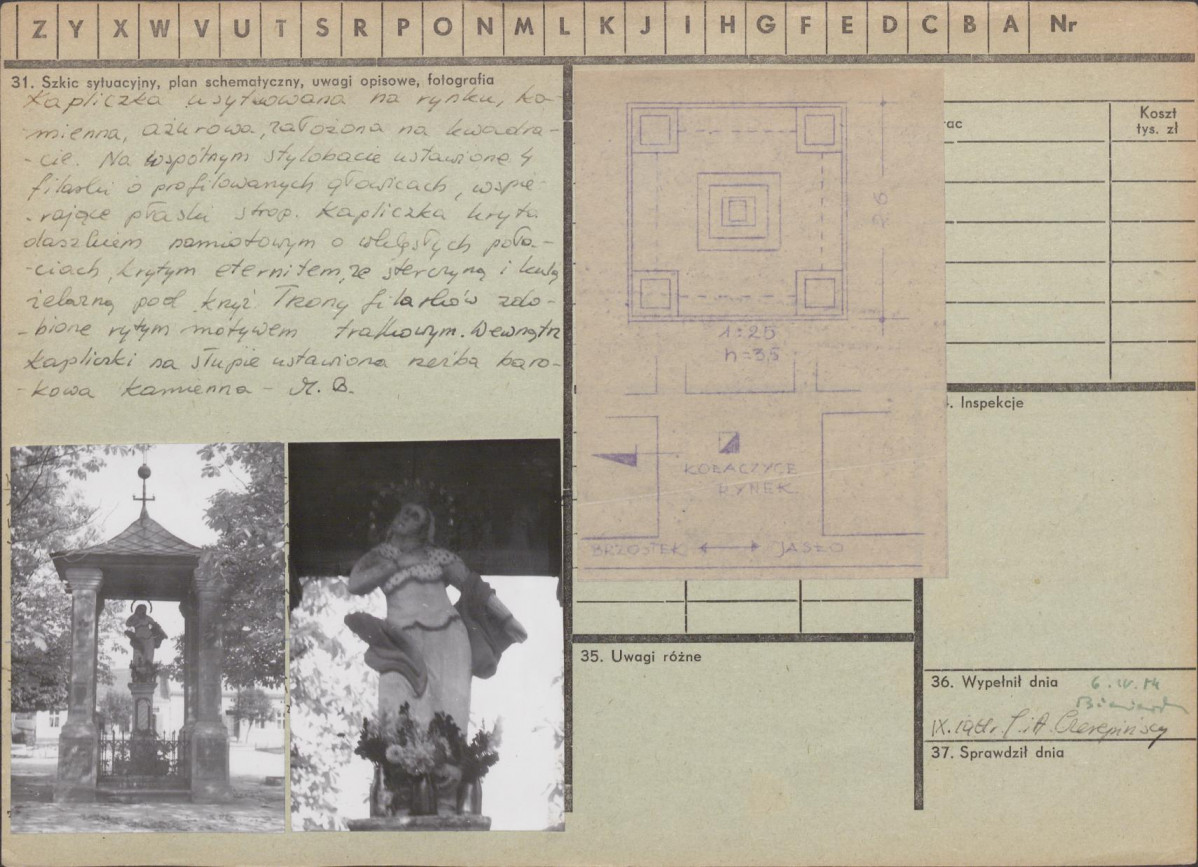 Z Y X W V U T S R P O N M L K J I H G F E D C B A Nr
31. Szkic sytuacyjny, plan schematyczny, uwagi opisowe, fotografia
Kapliczka usytuowana na rynku, ka-
mienna, ażurowa, założona na kwadra-
-cie. Na wspólnym stylobacie ustawione 4
filarki o profilowanych głowicach, wspie-
-rające płaski strop. Kapliczka kryta
daszkiem namiotowym o wklęsłych poła-
-ciach, krytym eternitem, ze sterczyną i kulą
żelazną pod krzyż. Trzony filarków zdo-
-bione rytym motywem tralkowym. Wewnątrz
kapliczki na słupie ustawiona rzeźba baro-
-kowa kamienna - M.B.
26
1:25
h=3,5
KOŁACZYCE
RYNEK
BRZOSTEK JASŁO
rac
Koszt
tys. zł
. Inspekcje
35. Uwagi różne
36. Wypełnił dnia 6.IV.84
IX.1981r. J. i A.
37. Sprawdził dnia